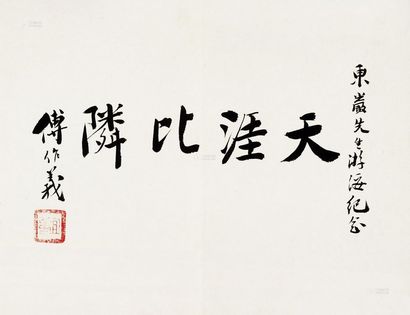 東巖先生游綏紀念
天涯比隣
傅作義